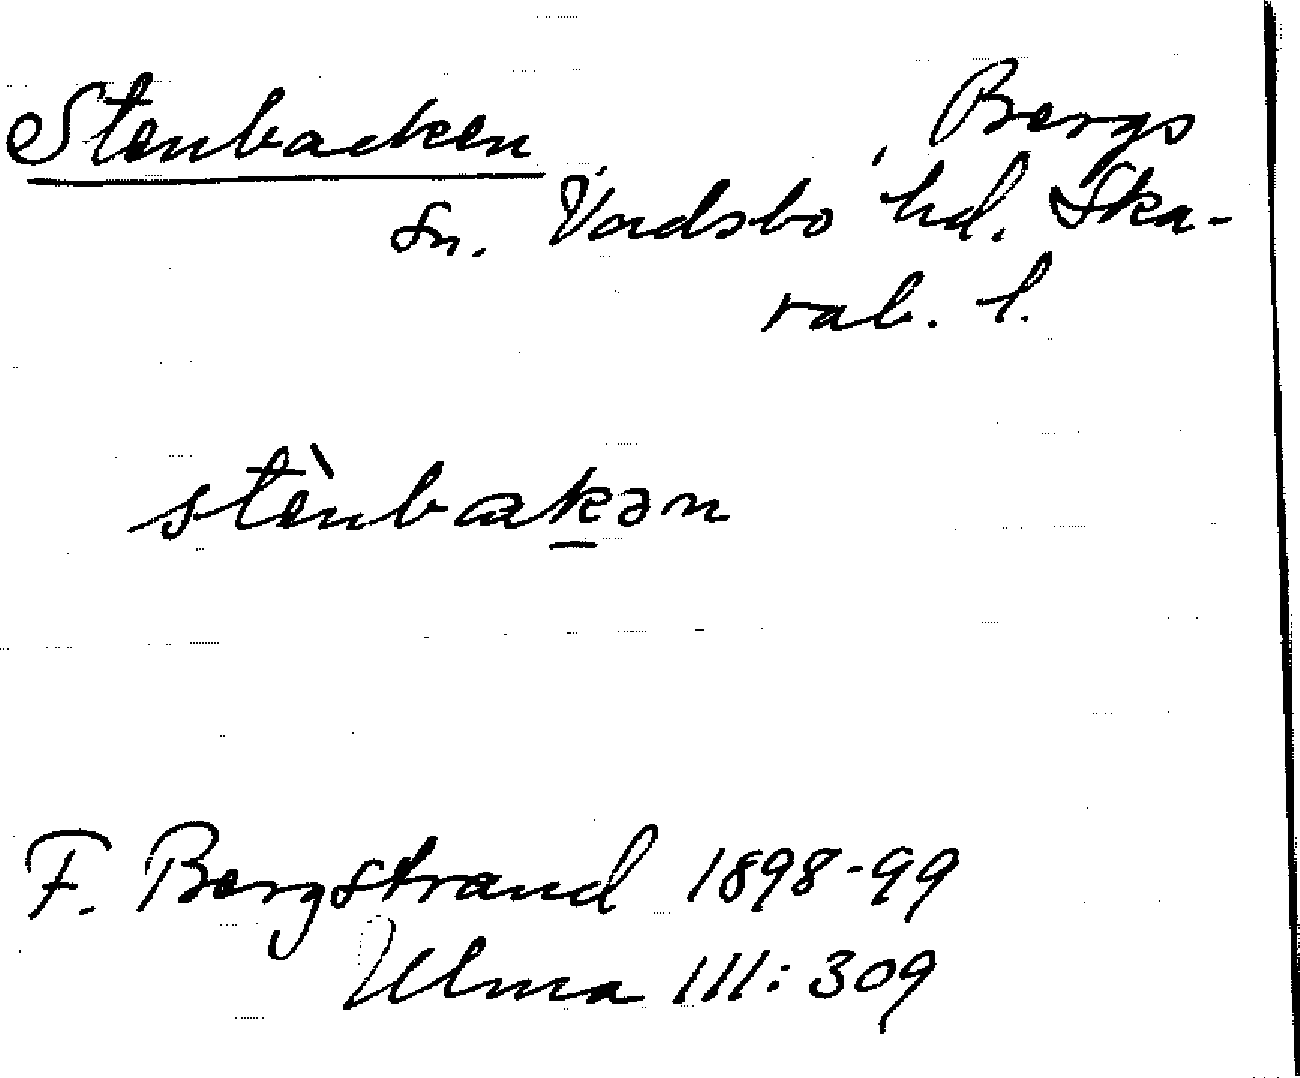 Stenbacken Bergs
sn. Vadsbo hd. Ska-
rab. l.
stènbakən
F. Bergstrand 1898-99
Ulma 111:309